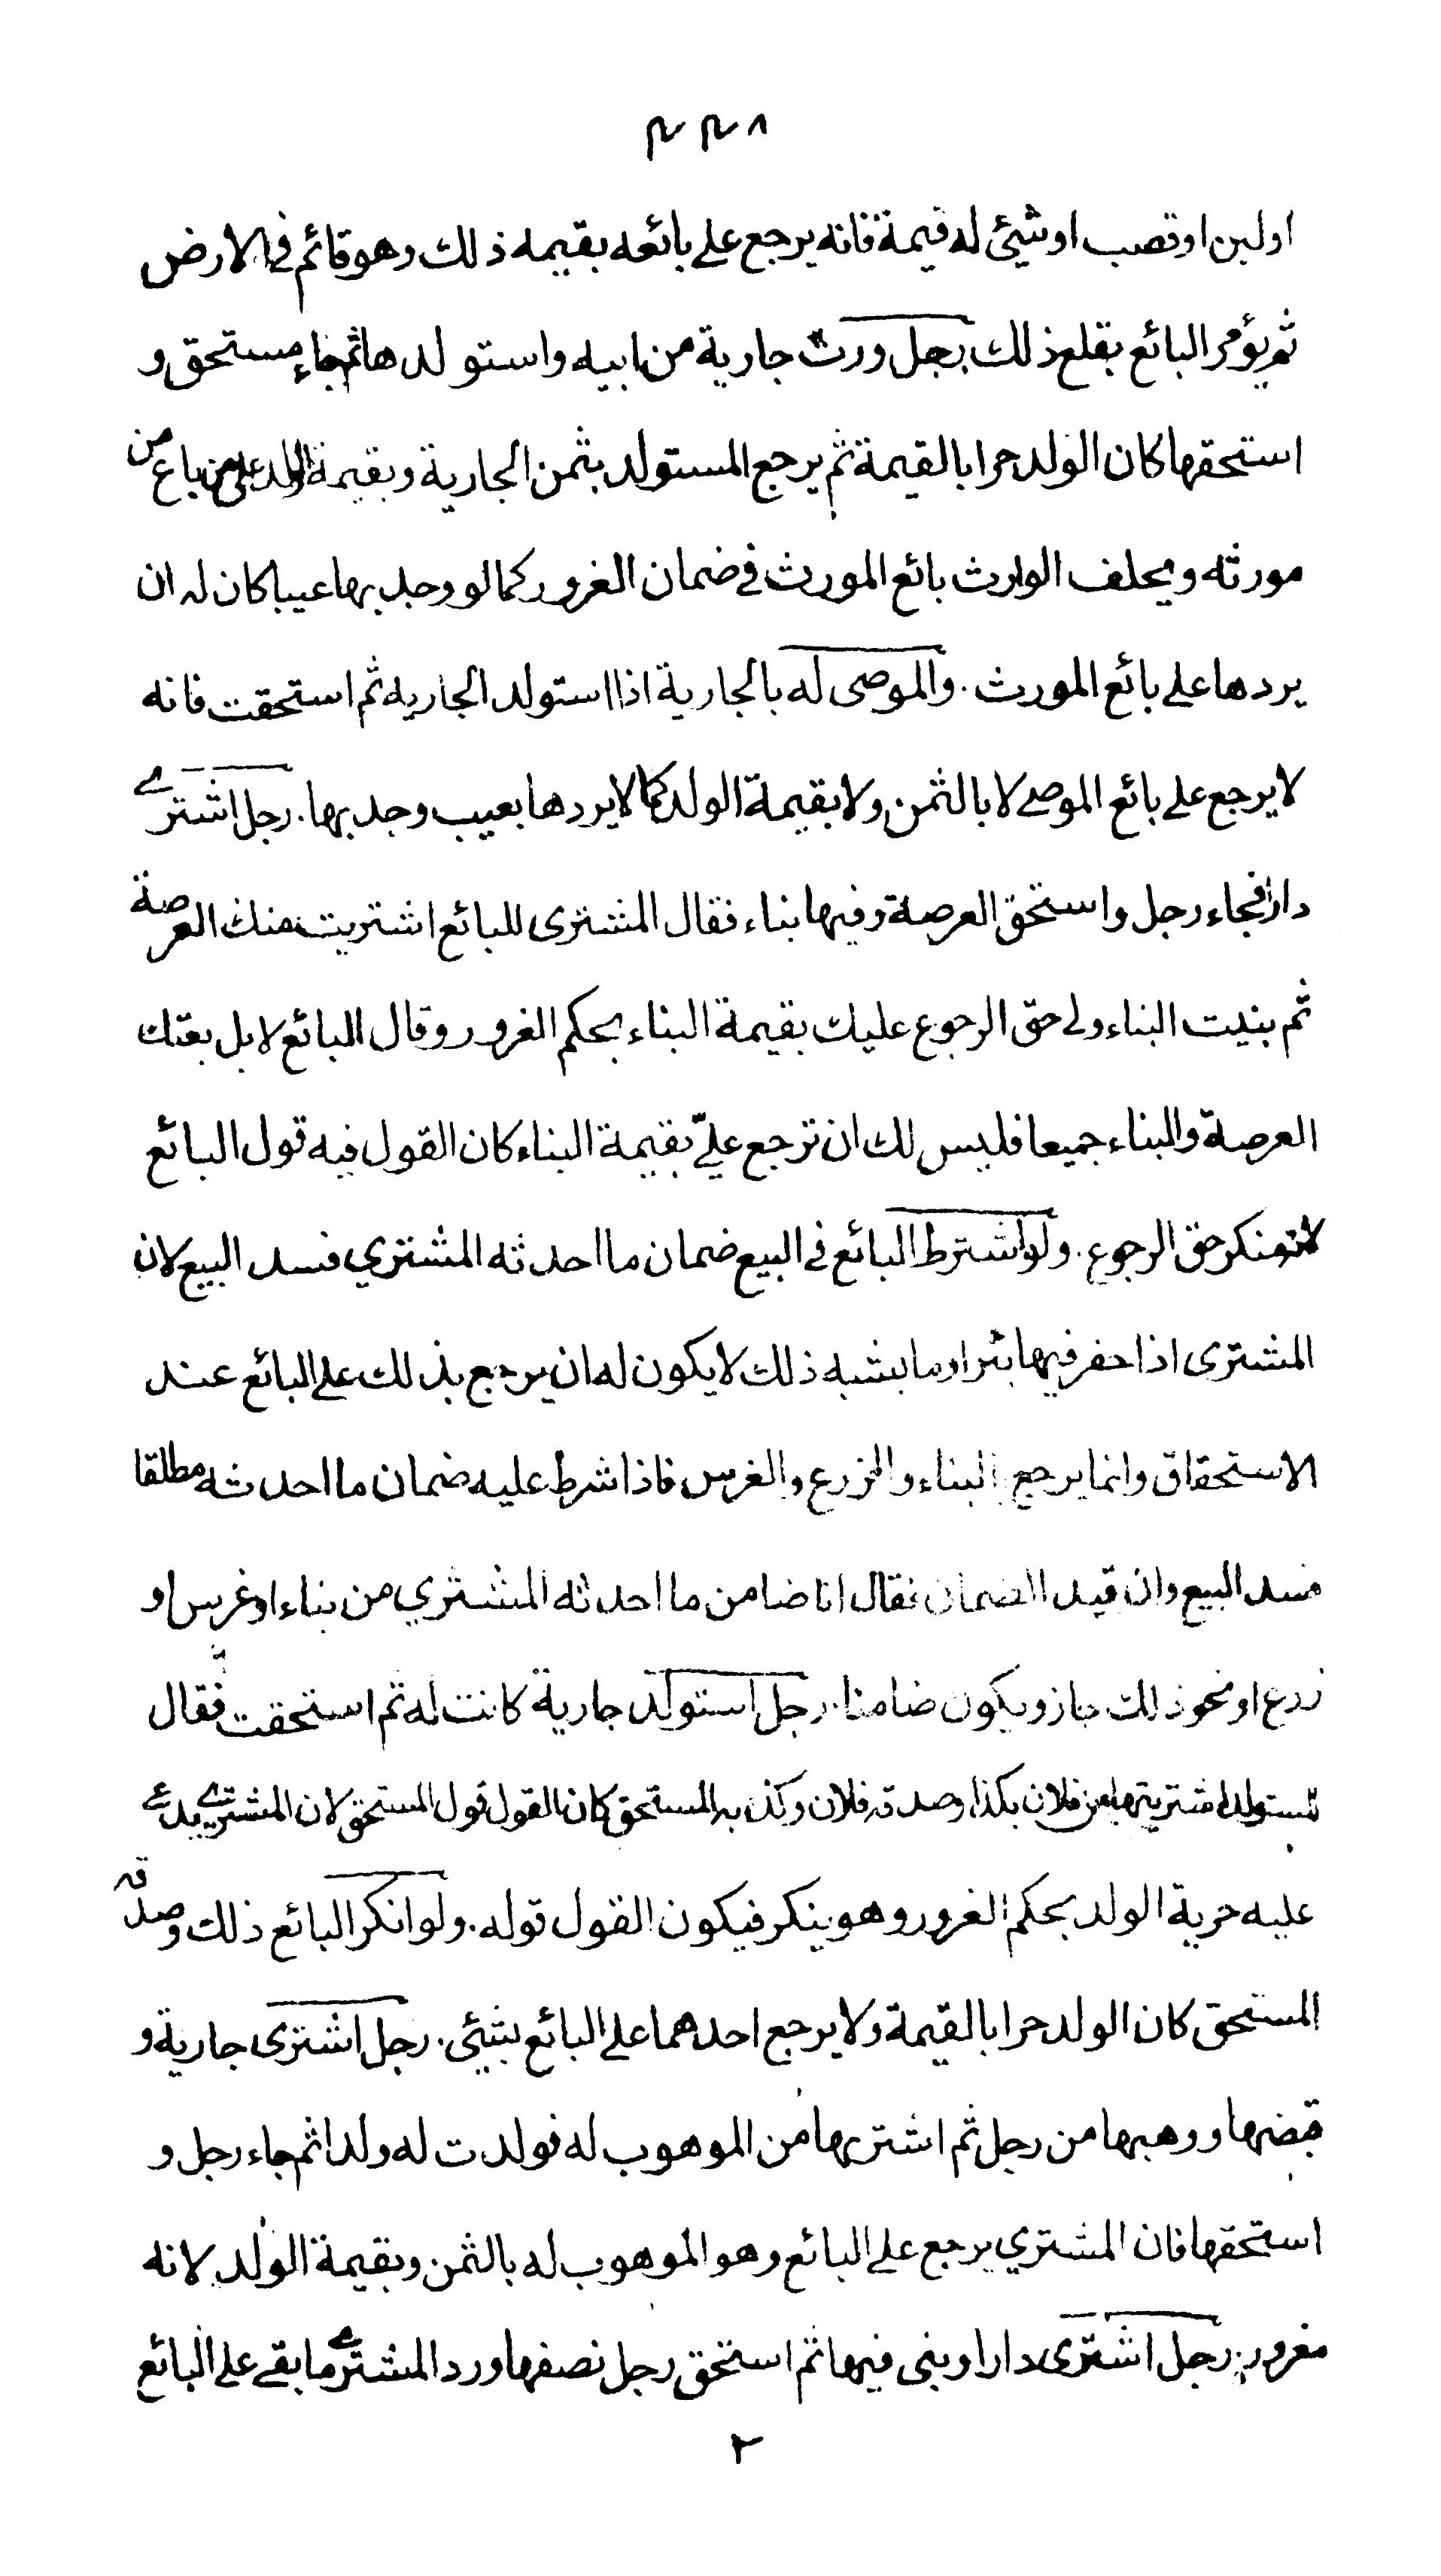 ٣٣٨
او لبن او قصب او شيئ له قيمة فانه يرجع على بائعه بقيمه ذلك وهو قائم في الارض
ثم يؤمر البائع بقلع ذلك رجل ورث جارية من ابيه واستولدها ثم جاء مستحق و
استحقها كان الولد حرا بالقيمة ثم يرجع المستولد بثمن الجارية وبقيمة الولد على من باع من
مورثه ويخلف الوارث بائع المورث في ضمان الغرور كما لو وجد بها عيبا كان له ان
يردها على بائع المورث . والموصى له بالجارية اذا استولد الجاريه ثم استحقت فانه
لا يرجع على بائع الموصے لا بالثمن ولا بقيمة الولد كما لا يردها بعيب وجد بها . رجل اشترے
دارا فجاء رجل واستحق العرصة وفيها بناء فقال المشترى للبائع اشتريت منك العرصة
ثم بنيت البناء ولى حق الرجوع عليك بقيمة البناء بحكم الغرور وقال البائع لا بل بعتك
العرصة والبناء جميعا فليس لك ان ترجع علىّ بقيمة البناء كان القول فيه قول البائع
لانه منكر حق الرجوع . ولو اشترط البائع في البيع ضمان ما احدثه المشتري فسد البيع لان
المشترى اذا حفر فيها بئرا وما يشبه ذلك لا يكون له ان يرجع بذلك على البائع عند
الاستحقاق وانما يرجع البناء والزرع والغرس فاذا شرط عليه ضمان ما احدثه مطلقا
فسد البيع وان قيد الضمان فقال انا ضامن ما احدثه المشتري من بناء او غرس او
زرع او نحو ذلك جاز ويكون ضامنا . رجل استولد جارية كانت له ثم استحقت فقال
المستولد اشتريتها من فلان بكذا وصدقه فلان وكذبه المستحق كان القول قول المستحق لان المشترے يدعے
عليه حرية الولد بحكم الغرور وهو ينكر فيكون القول قوله . ولو انكر البائع ذلك وصدقه
المستحق كان الولد حرا بالقيمة ولا يرجع احدهما على البائع بشيئ . رجل اشترى جارية و
قبضها ووهبها من رجل ثم اشتريها من الموهوب له فولدت له ولدا ثم جاء رجل و
استحقها فان المشتري يرجع على البائع وهو الموهوب له بالثمن وبقيمة الولد لانه
مغرور . رجل اشترى دارا وبنى فيها ثم استحق رجل نصفها ورد المشترے ما بقے على البائع
٢